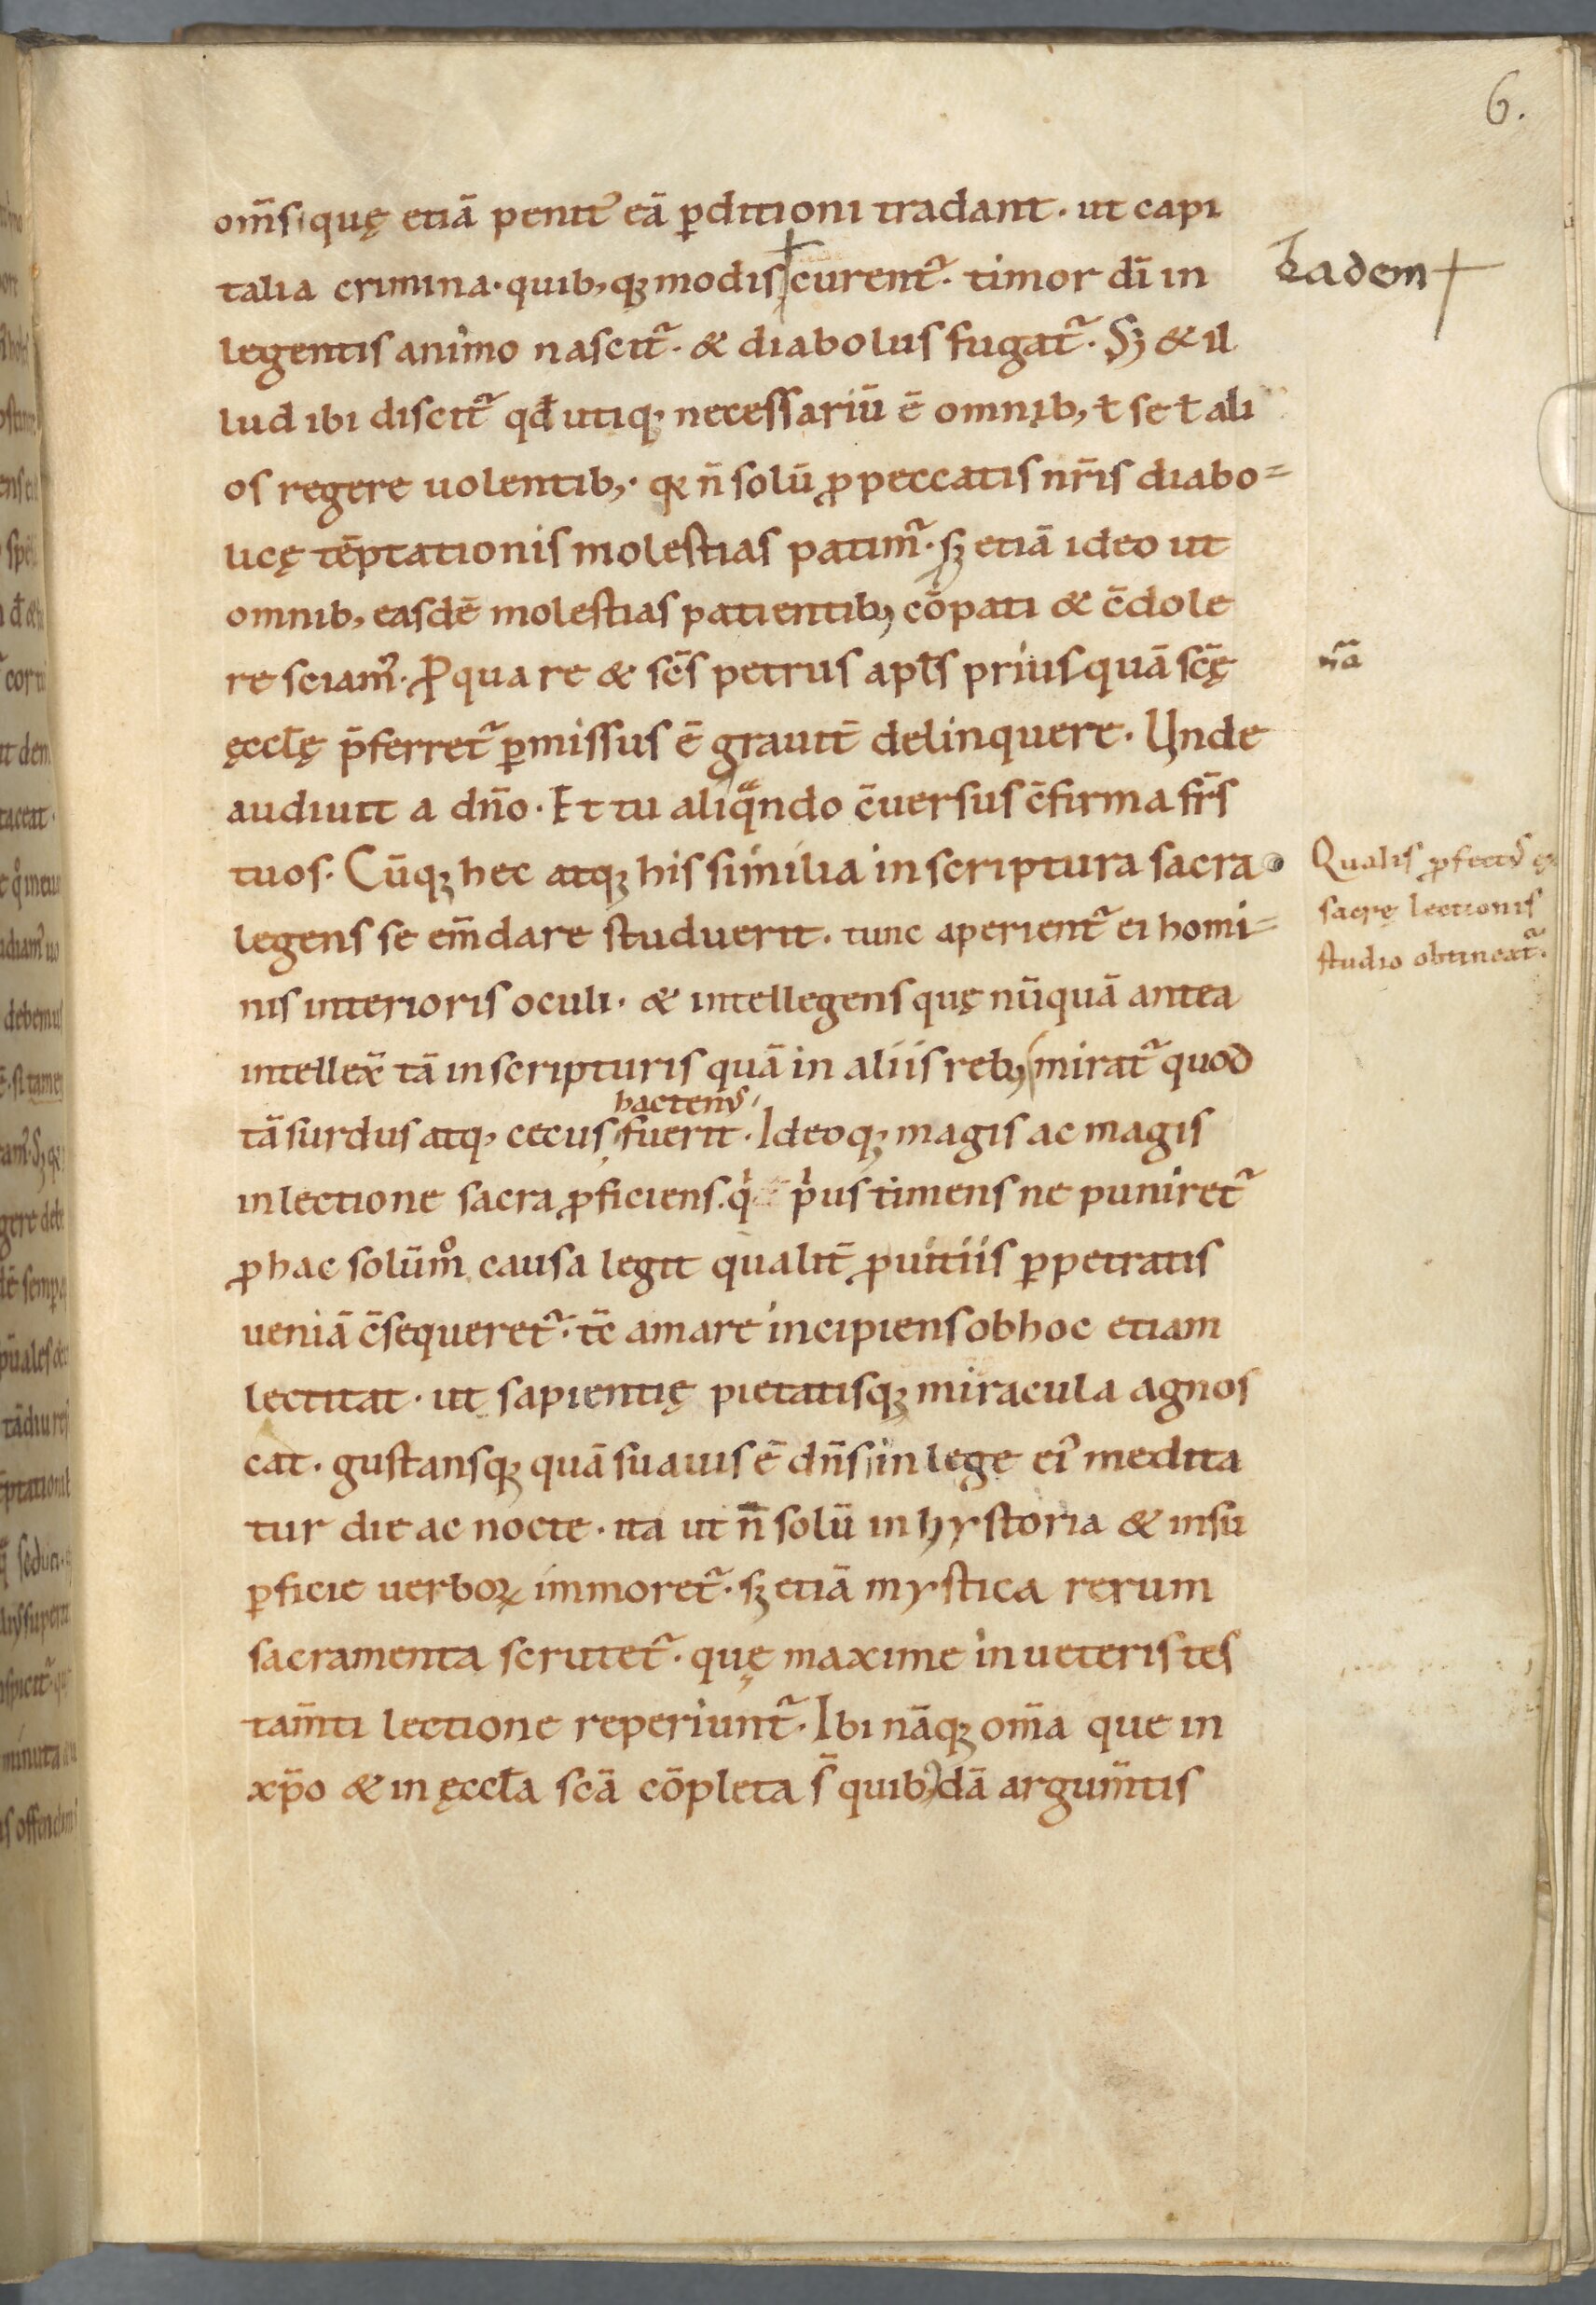 6.
om̄s quę etiā penit᷒ eā ꝑditioni tradant. ut capi
talia crimina. quib; qꝫ modis curent᷑. timor dī in
Eadem
legentis animo nascit᷑. & diabolus fugat᷑. Sꝫ & il
lud ibi discit᷑ qđ utiqꝫ necessariū ē omnib; ł se ł ali
os regere uolentib;. qꝛ n̄ solū ꝓ peccatis nr̄is diabo=
licę tēptationis molestias patimur᷑. sꝫ etiā ideo ut
omnib; easdē molestias patientib; cōpati & c̄dole
re sciam᷒. Pro qua re & sc̄s petrus apl̄s prius quā scę̄
nā
ęccłę p̄ferret᷑ ꝑmissus ē grauit̄ delinquere. Unde
audiuit a dn̄o. Et tu aliqͣndo c̄uersus c̄firma fr̄s
tuos. Cūqꝫ hec atqꝫ his similia in scriptura sacra
Qualis ꝓfect᷒ ex
sacrę lectionis
studio obtineat᷑.
legens se em̄dare studuerit. tunc aperient᷑ ei homi=
nis interioris oculi. & intellegens quę nūquā antea
intellex̄ tā in scripturis quā in aliis reb; mirat᷑ quod
hacten᷒
tā surdus atqꝫ cecus, fuerit. Ideoqꝫ magis ac magis
in lectione sacra ꝓficiens. qͥ pͥus timens ne puniret᷑
ꝓ hac solūmͦ causa legit qualit̄ ꝓ uitiis ꝑpetratis
ueniā c̄sequeret᷑. tc̄ amare incipiens ob hoc etiam
lectitat. ut sapientię pietatisqꝫ miracula agnos
cat. gustansqꝫ quā suauis ē dn̄s in lege ei᷒ medita
tur die ac nocte. ita ut n̄ solū in hystoria & in su
ꝑficie uerboꝝ immoret᷑. sꝫ etiā mystica rerum
sacramenta scrutet᷑. quę maxime in ueteris tes
tam̄ti lectione reperiunt᷑. Ibi nāqꝫ om̄a que in
xp̄o & in ęccła scā cōpleta s̄ quib; dā argum̄tis